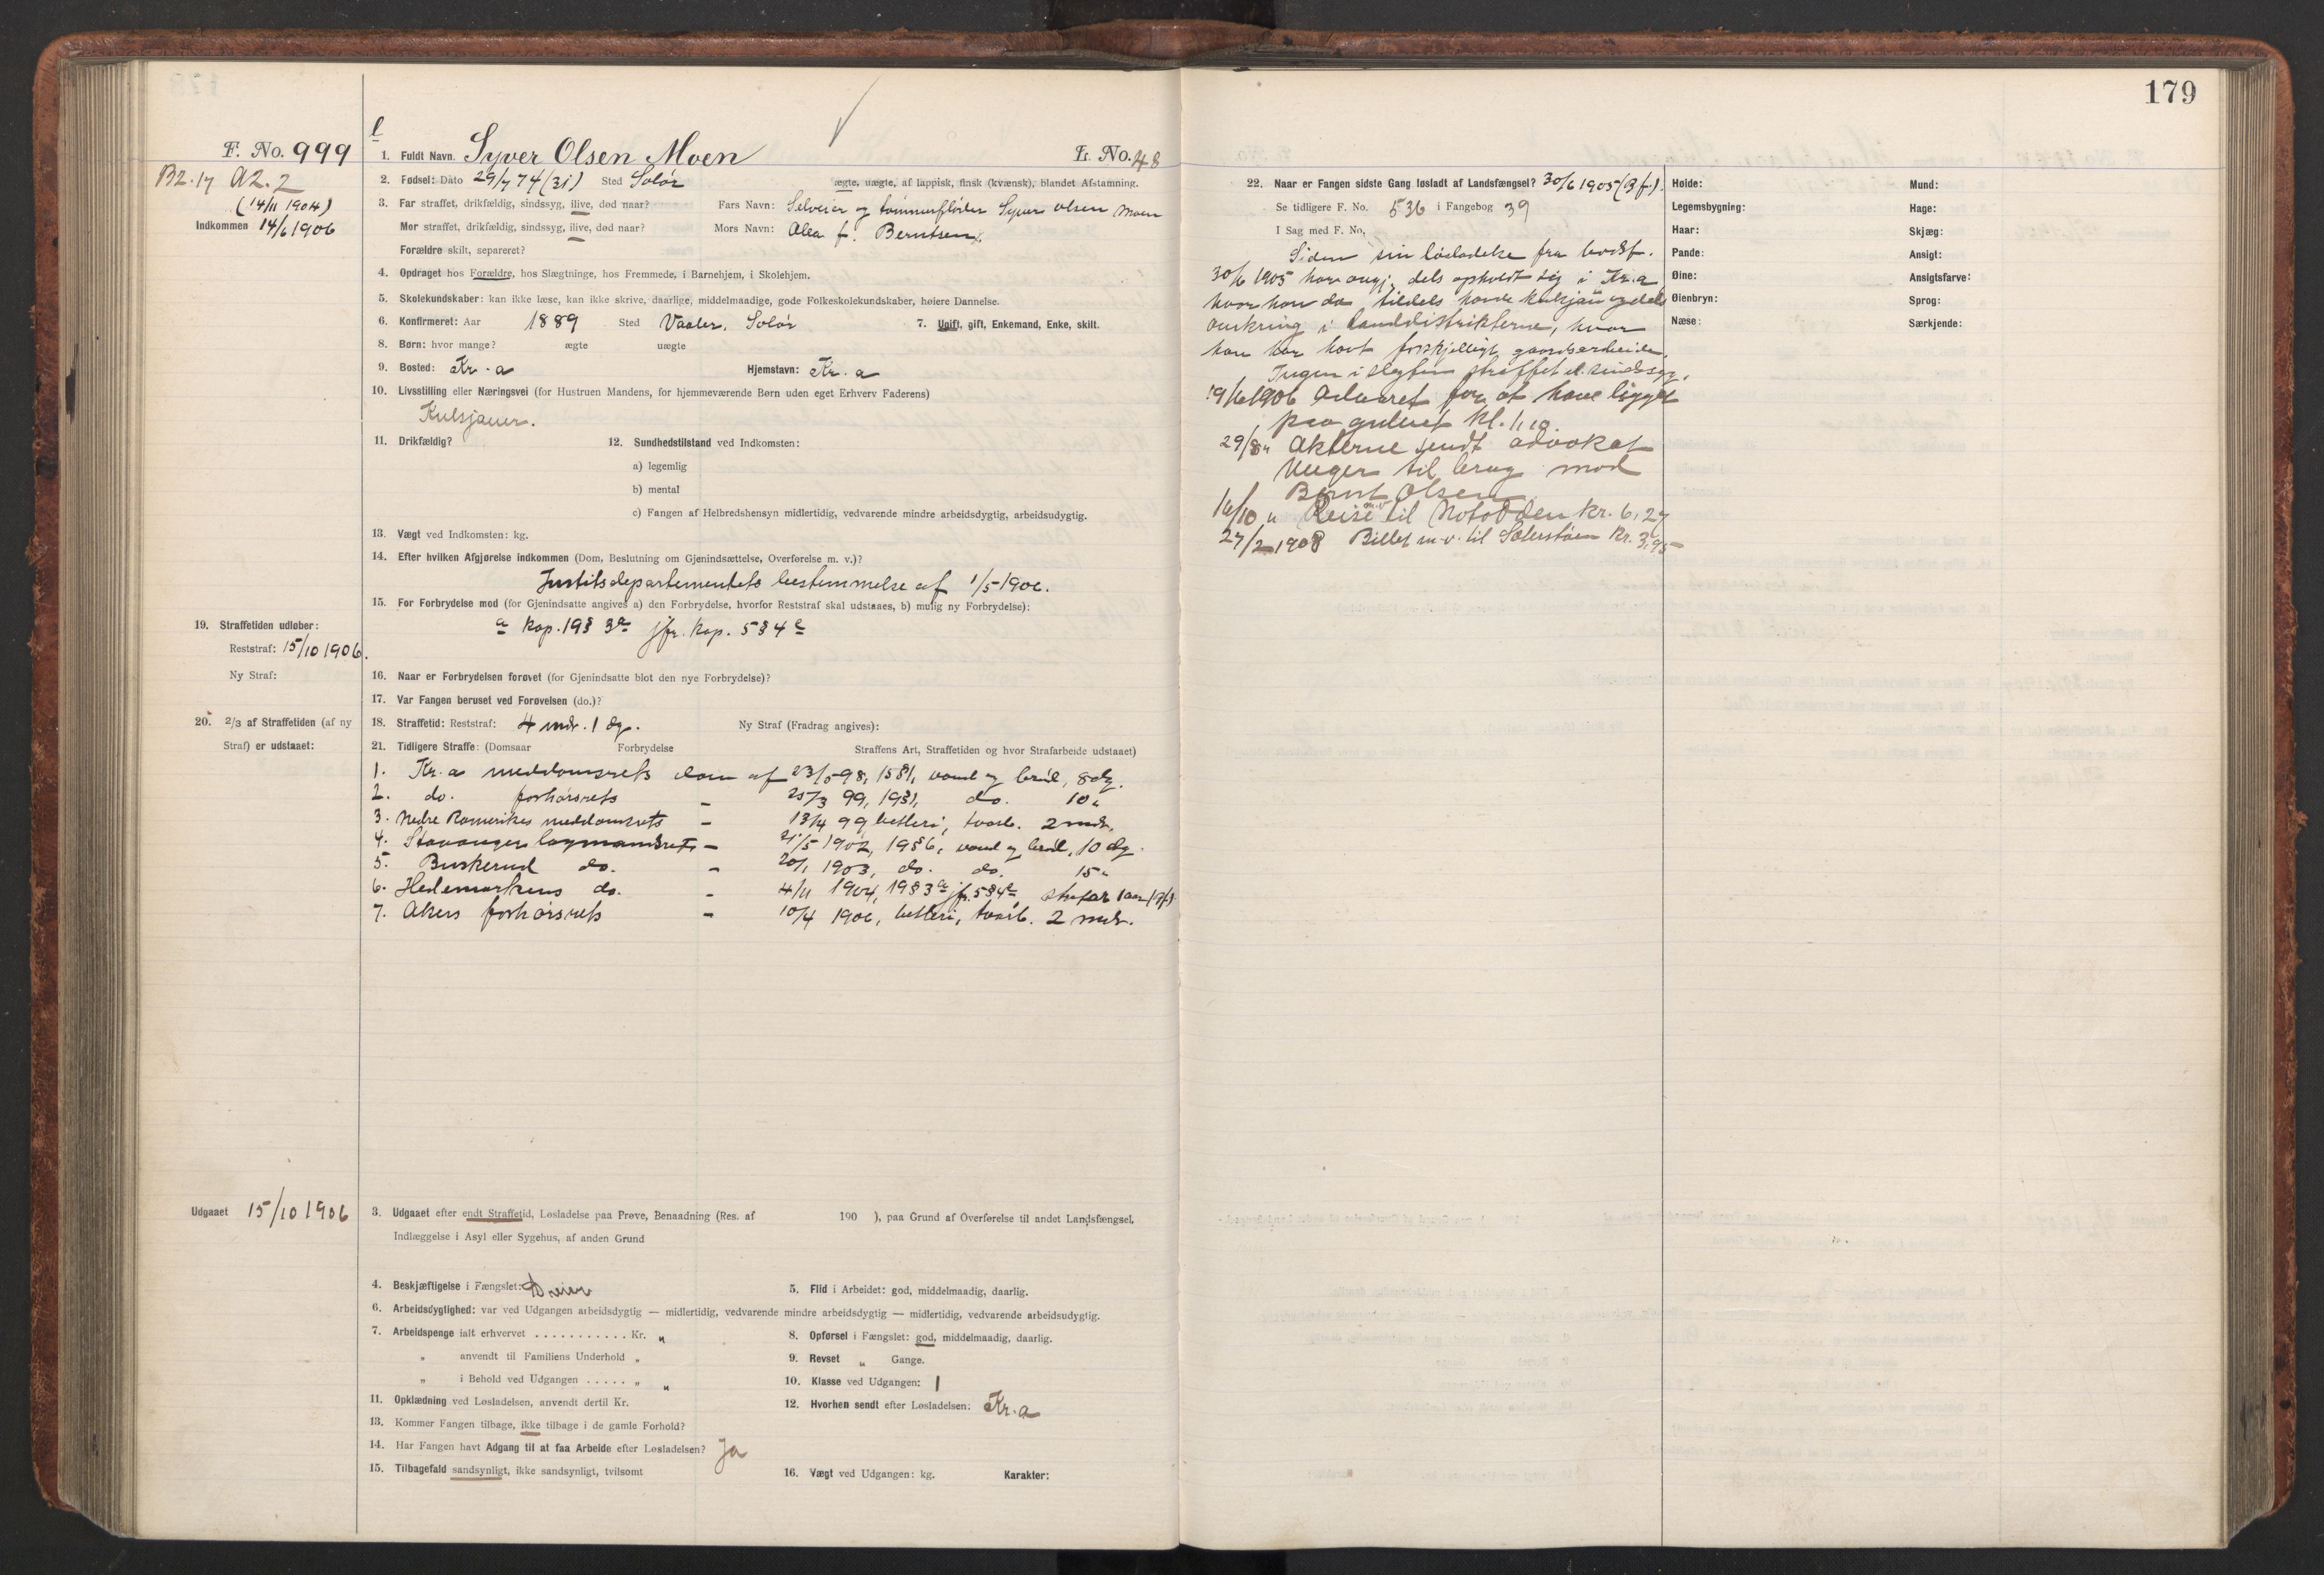 179
F. No. 999
l
1. Fuldt Navn. Syver Olsen Moen
L. No. 48
B2.17 A2.2
(14/11 1904)
Indkommen 14/6 1906
2. Fødsel: Dato 29/7 74 (31) Sted Solør
ægte, uægte, af lappisk, finsk (kvænsk), blandet Afstamning.
3. Far straffet, drikfældig, sindssyg, ilive, død naar? Fars Navn: Selveier og tømmerfløder Syver Olsen Moen
Mor straffet, drikfældig, sindssyg, ilive, død naar? Mors Navn: Olea f. Berntsen.
Forældre skilt, separeret?
4. Opdraget hos Forældre, hos Slægtninge, hos Fremmede, i Barnehjem, i Skolehjem.
5. Skolekundskaber: kan ikke læse, kan ikke skrive, daarlige, middelmaadige, gode Folkeskolekundskaber, høiere Dannelse.
6. Konfirmeret: Aar 1889 Sted Vaaler, Solør 7. Ugift, gift, Enkemand, Enke, skilt.
8. Børn: hvor mange? ægte uægte
9. Bosted: Kr.a Hjemstavn: Kr.a
10. Livsstilling eller Næringsvei (for Hustruen Mandens, for hjemmeværende Børn uden eget Erhverv Faderens)
Kulsjauer.
11. Drikfældig? 12. Sundhedstilstand ved Indkomsten:
a) legemlig
b) mental
c) Fangen af Helbredshensyn midlertidig, vedvarende mindre arbeidsdygtig, arbeidsudygtig.
13. Vægt ved Indkomsten: kg.
14. Efter hvilken Afgjørelse indkommen (Dom, Beslutning om Gjenindsættelse, Overførelse m. v.)?
Justitsdepartementets bestemmelse af 1/5 1906.
15. For Forbrydelse mod (for Gjenindsatte angives a) den Forbrydelse, hvorfor Reststraf skal udstaaes, b) mulig ny Forbrydelse):
a kap. 19 § 3 a jfr. kap. 5 § 4
19. Straffetiden udløber:
Reststraf: 15/10 1906.
Ny Straf:
16. Naar er Forbrydelsen forøvet (for Gjenindsatte blot den nye Forbrydelse)?
17. Var Fangen beruset ved Forøvelsen (do.)?
20. 2/3 af Straffetiden (af ny
Straf) er udstaaet:
18. Straffetid: Reststraf: 4 mdr. 1 dg. Ny Straf (Fradrag angives):
21. Tidligere Straffe: (Domsaar Forbrydelse Straffens Art, Straffetiden og hvor Strafarbeide udstaaet)
1. Kr.a meddomsrets dom af 23/5 98, 15§1, vand og brød, 8 dg.
2. do. forhørsrets – 25/3 99, 19§1, do. 10 "
3. Nedre Romerikes meddomsrets – 13/4 99 betleri, tvarb. 2 mdr.
4. Stavanger lagmandsrets – 21/5 1902, 19§6, vand og brød, 10 dg.
5. Buskerud do. – 20/1 1903, do. do. 15 "
6. Hedemarkens do. – 4/11 1904, 19§3 a jfr. 5§4, strafarb 1 aar (Bf.)
7. Akers forhørsrets – 10/4 1906, betleri, tvarb. 2 mdr.
Udgaaet 15/10 1906
3. Udgaaet efter endt Straffetid, Løsladelse paa Prøve, Benaadning (Res. af 190 ), paa Grund af Overførelse til andet Landsfængsel,
Indlæggelse i Asyl eller Sygehus, af anden Grund
4. Beskjæftigelse i Fængslet: Dreier 5. Flid i Arbeidet: god, middelmaadig, daarlig.
6. Arbeidsdygtighed: var ved Udgangen arbeidsdygtig — midlertidig, vedvarende mindre arbeidsdygtig — midlertidig, vedvarende arbeidsudygtig.
7. Arbeidspenge ialt erhvervet . . . . . . . . . . . Kr. " 8. Opførsel i Fængslet: god, middelmaadig, daarlig.
" anvendt til Familiens Underhold " 9. Revset " Gange.
" i Behold ved Udgangen . . . . . " " 10. Klasse ved Udgangen: 1
11. Opklædning ved Løsladelsen, anvendt dertil Kr. 12. Hvorhen sendt efter Løsladelsen: Kr.a
13. Kommer Fangen tilbage, ikke tilbage i de gamle Forhold?
14. Har Fangen havt Adgang til at faa Arbeide efter Løsladelsen? Ja
15. Tilbagefald sandsynligt, ikke sandsynligt, tvilsomt 16. Vægt ved Udgangen: kg. Karakter:
22. Naar er Fangen sidste Gang løsladt af Landsfængsel? 30/6 1905 (Bf.)
Se tidligere F. No. 536 i Fangebog 39
I Sag med F. No.
Siden sin løsladelse fra bodsf.
30/6 1905 har angj. dels opholdt sig i Kr.a
hvor han da tildels havde kulsjau og dels
omkring i landdistrikterne, hvor
han har havt forskjelligt gaardsarbeide.
Ingen i slegten straffet el. sindssyg.
19/6 1906 Advaret for at have ligget
paa gulvet kl. 1,10.
29/8 " Akterne sendt advokat
Unger til brug mod
Bernt Olsen
16/10 " Reise m.v. til Notodden kr. 6,27
27/2 1908 Billet m.v. til Sæterstøen kr. 3,95
Høide:
Legemsbygning:
Haar:
Pande:
Øine:
Øienbryn:
Næse:
Mund:
Hage:
Skjæg:
Ansigt:
Ansigtsfarve:
Sprog:
Særkjende: